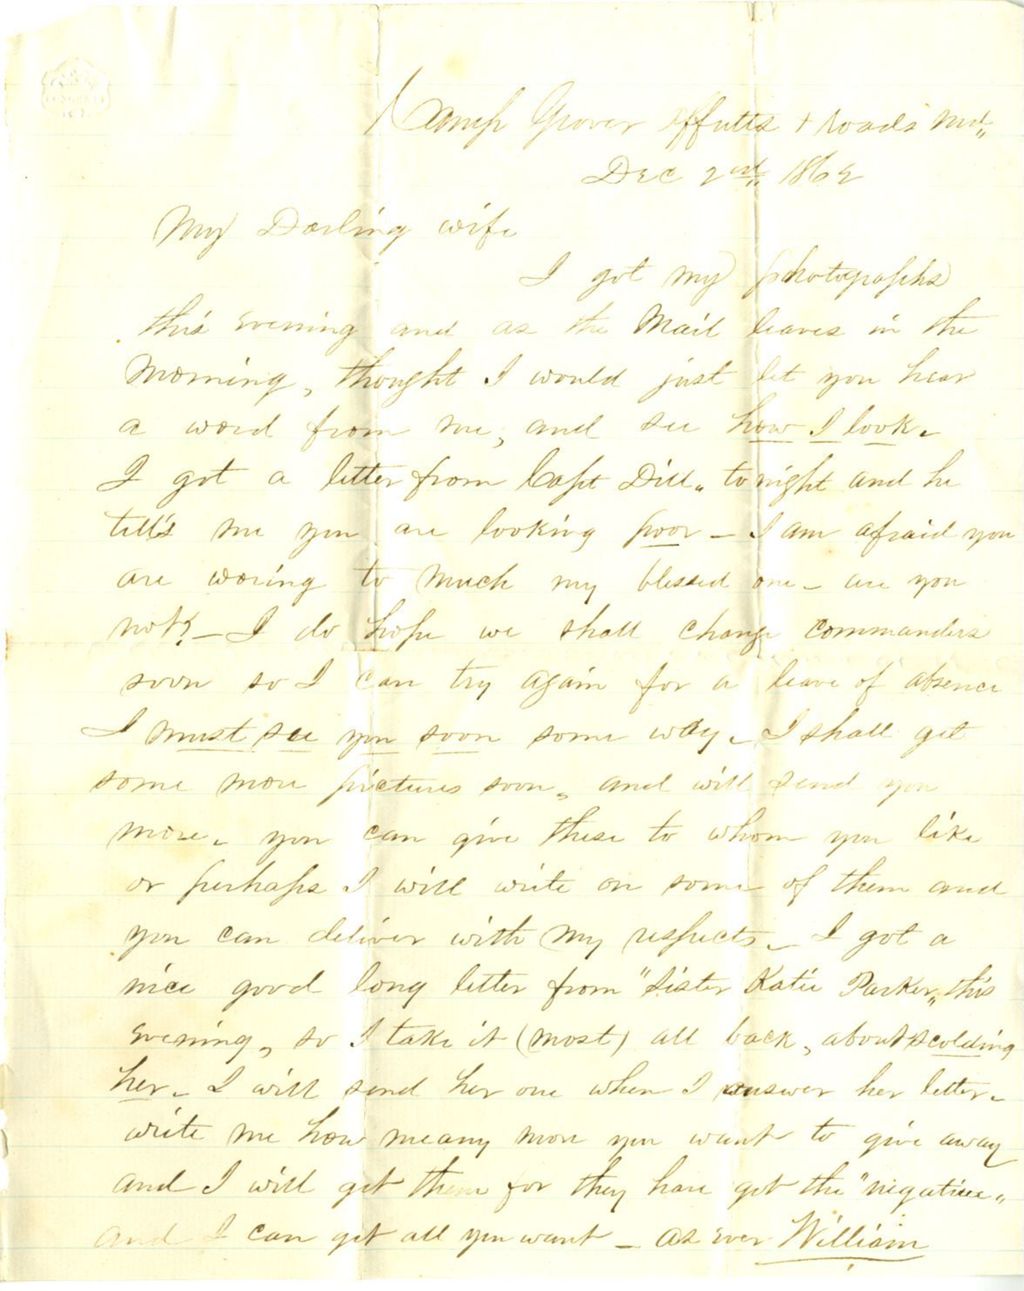 Camp Grover Offutts + Roads Md"
Dec 2nd, 1862
My Darling wife
I got my photographs
this Evening and as the Mail leaves in the
Morning, thought I would just let you hear
a word from me, and see how I look.
I got a letter from Capt Dill" tonight and he
tell's me you are looking poor - I am afraid you
are woring to much my blessed one - are you
not? - I do hope we shall change commanders
soon so I can try again for a leave of absence
I must see you soon some way. I shall get
some more pictures soon, and will send you
more. you can give these to whom you like
or perhaps I will write on some of them and
you can deliver with my respects - I got a
nice good long letter from "Sister Katie Parker" this
Evening, so I take it (most) all back, about scolding
her. I will send her one when I answer her letter.
write me how meany more you want to give away
and I will get them for they have got the "negative"
and I can get all you want - as ever William